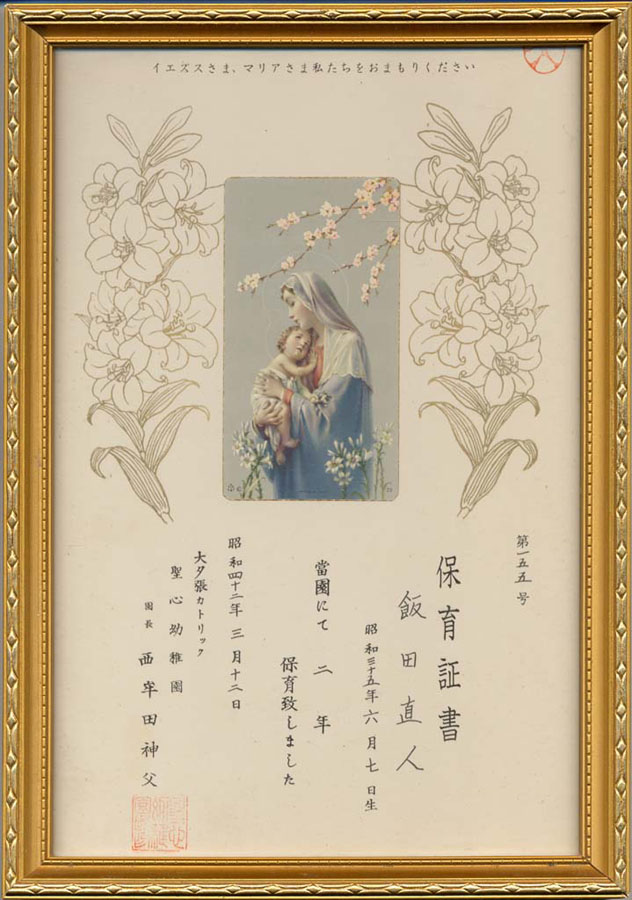 イエズスさま、マリアさま私たちをおまもりください
第一五五号
保育証書
飯田直人
昭和三十五年六月七日生
當園にて二年
保育致しました
昭和四十二年三月十二日
大夕張カトリック
聖心幼稚園
園長 西牟田神父